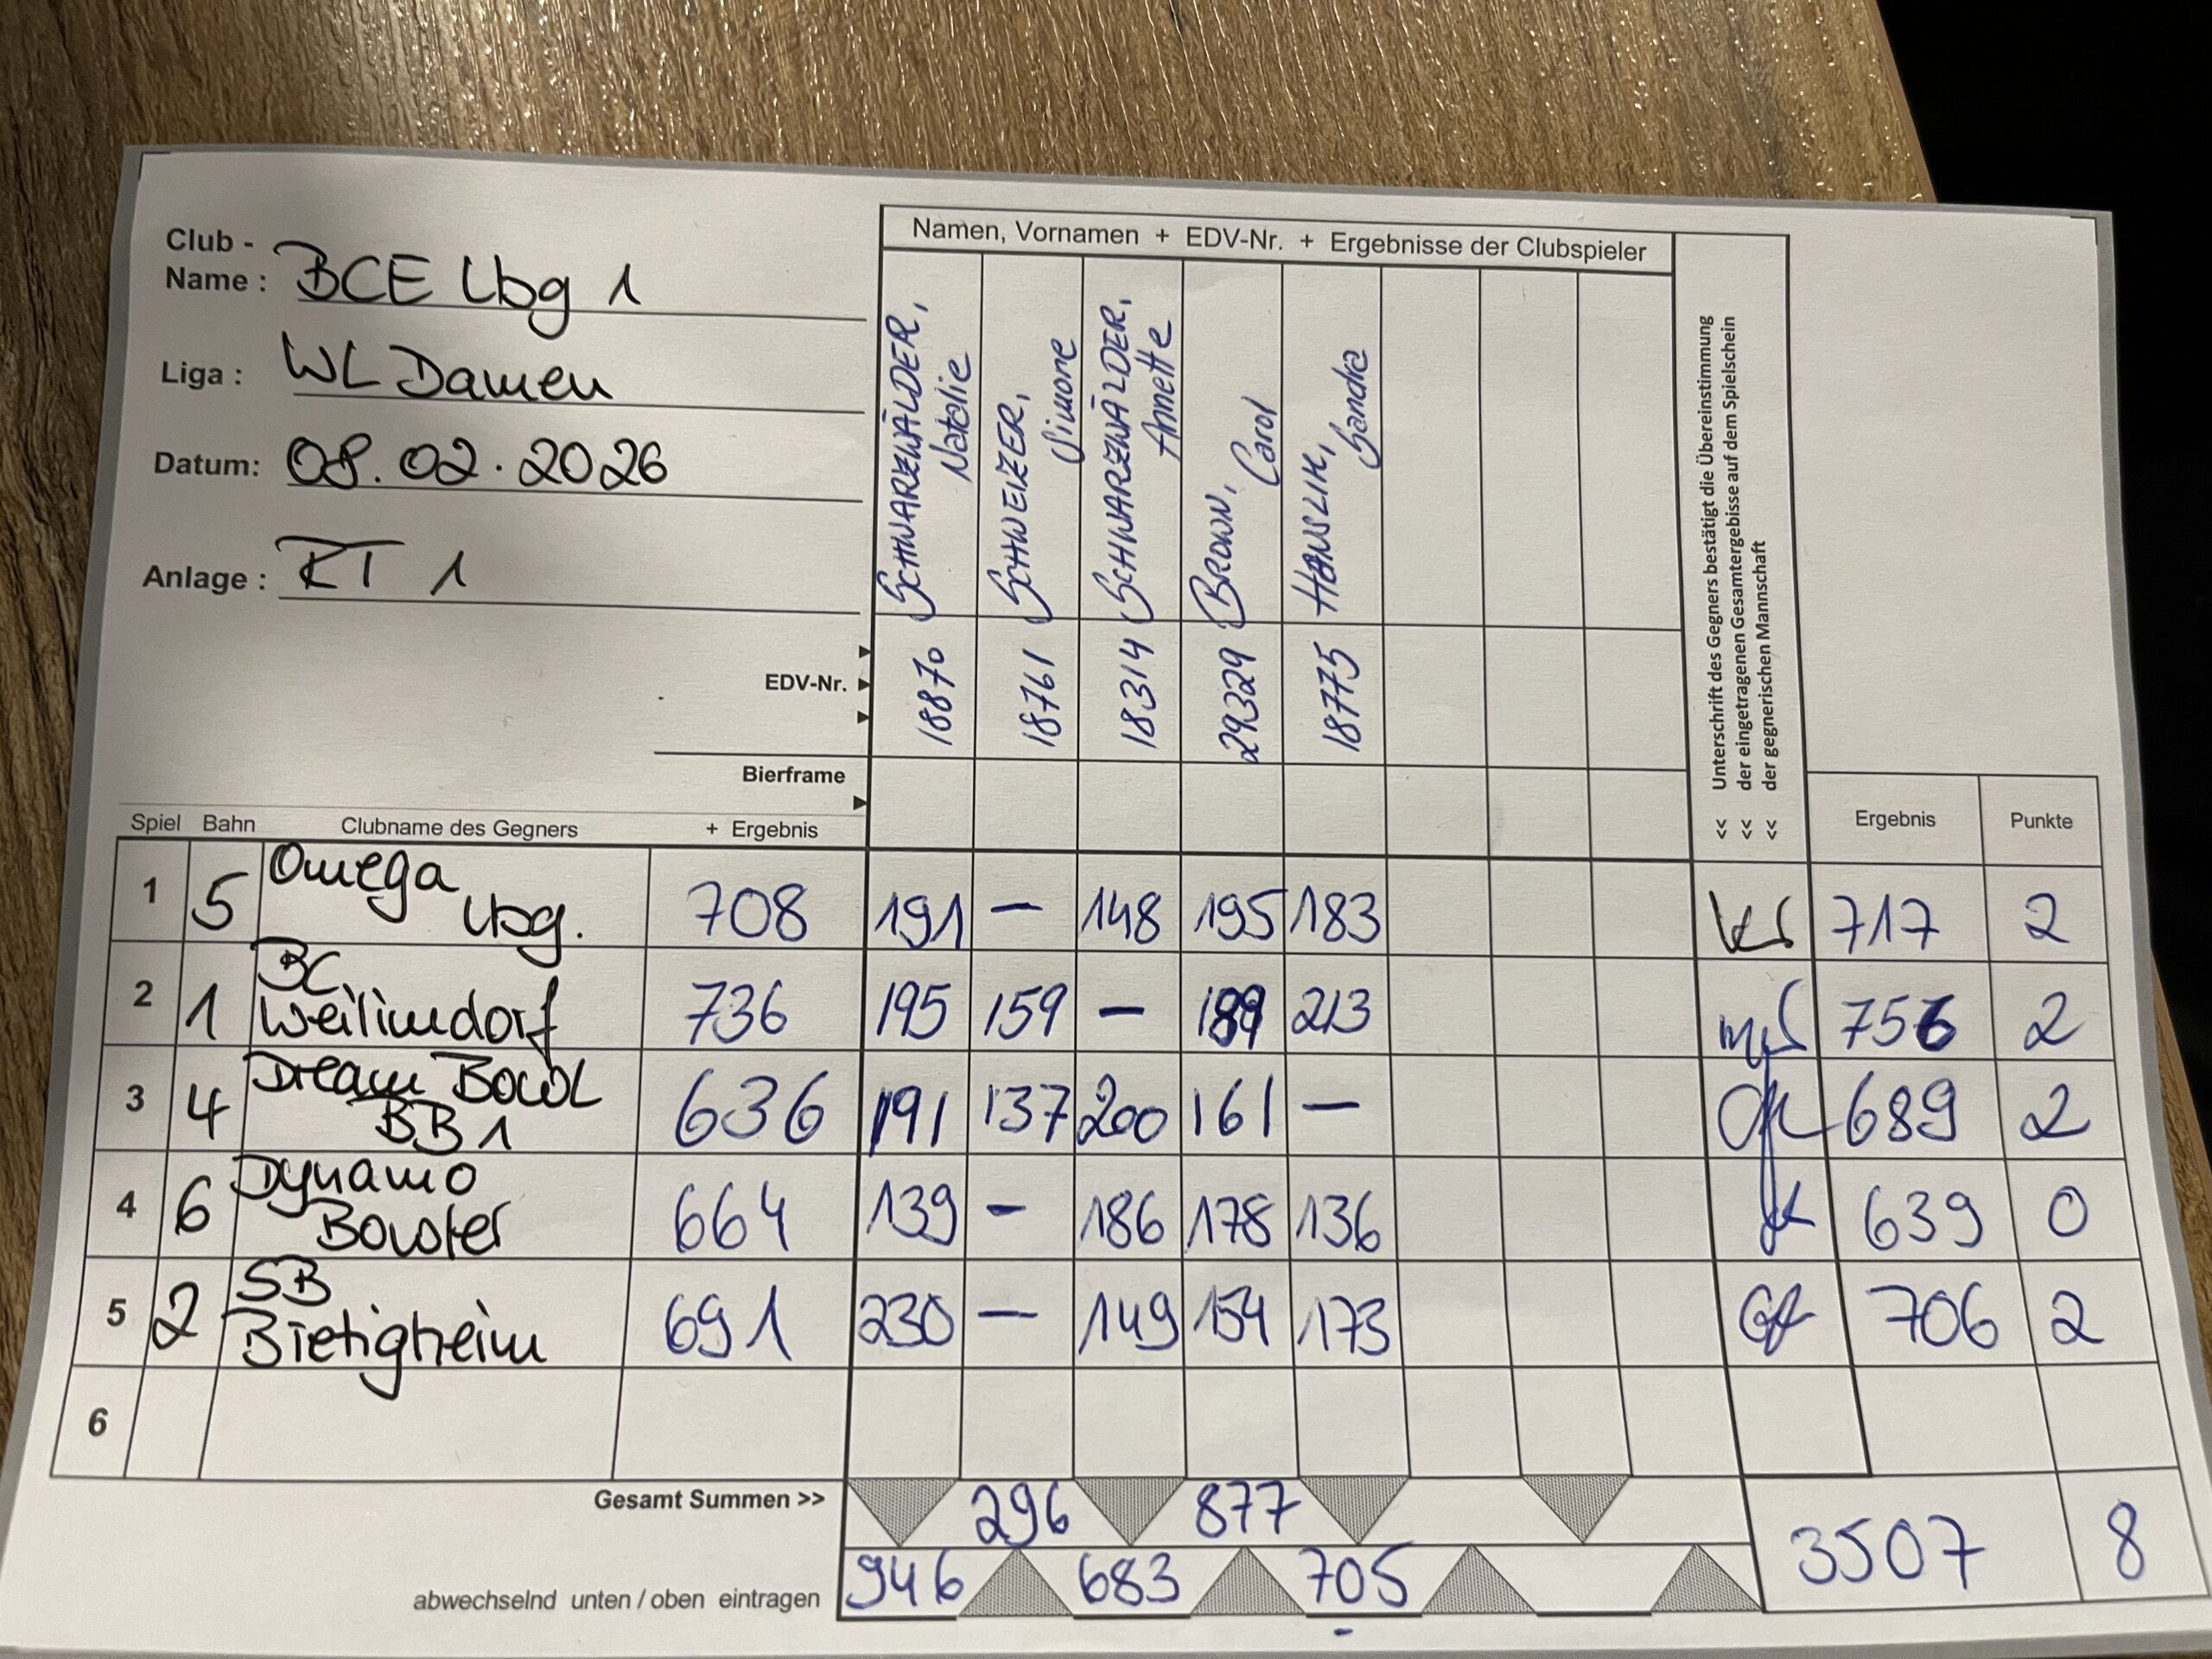 Namen, Vornamen + EDV-Nr. + Ergebnisse der Clubspieler
Club -
Name : BCE Lbg 1
Liga : WL Damen
Datum: 08.02.2026
Anlage : RT 1
SCHWARZWÄLDER, Natalie
SCHWEIZER, Simone
SCHWARZWÄLDER, Annette
BROWN, Carol
HANSLIK, Sandra
<< Unterschrift des Gegners bestätigt die Übereinstimmung
<< der eingetragenen Gesamtergebisse auf dem Spielschein
<< der gegnerischen Mannschaft
EDV-Nr. 18870 18761 18314 29329 18775
Bierframe
Spiel Bahn Clubname des Gegners + Ergebnis Ergebnis Punkte
1 5 Omega Lbg. 708 191 – 148 195 183 717 2
2 1 BC Weilimdorf 736 195 159 – 189 213 756 2
3 4 Dream Bowl BB 1 636 191 137 200 161 – 689 2
4 6 Dynamo Bowler 664 139 – 186 178 136 639 0
5 2 SB Bietigheim 691 230 – 149 154 173 706 2
6
Gesamt Summen >> 296 877
abwechselnd unten / oben eintragen 946 683 705
3507 8